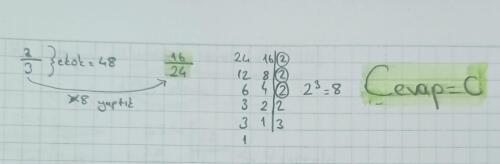 2/3 } ekok = 48
x8 yaptık
16/24
24 16 | 2
12 8 | 2
6 4 | 2
3 2 | 2
3 1 | 3
1
2³ = 8
Cevap = C